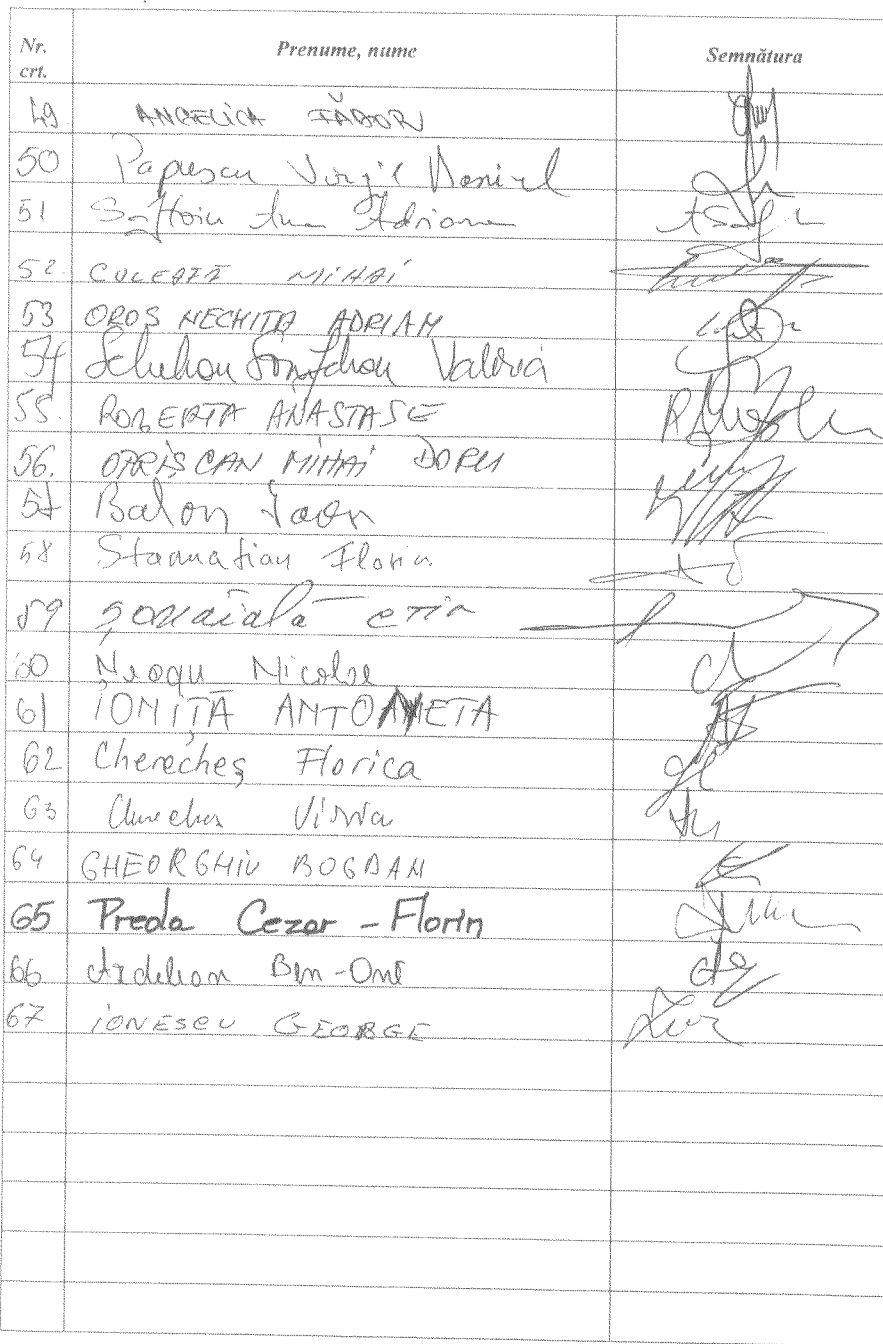 Nr. crt. Prenume, nume Semnătura
49 ANGELICA FĂDOR
50 Papuscu Virgil Daniel
51 Săftoiu Ana Adriana
52. CULEAȚĂ MIHAI
53 OROS NECHITA ADRIAN
54 Schelian Valeria
55. ROBERTA ANASTASE
56. OPRIȘCAN MIHAI DORU
57 Balan Ioan
58 Stamatian Florin
59 Șomăială
60 Neagu Nicolae
61 IONIȚĂ ANTOANETA
62 Cherecheș Florica
63
64 GHEORGHIU BOGDAN
65 Preda Cezar - Florin
66 Ardelean Ben-Oni
67 IONESCU GEORGE